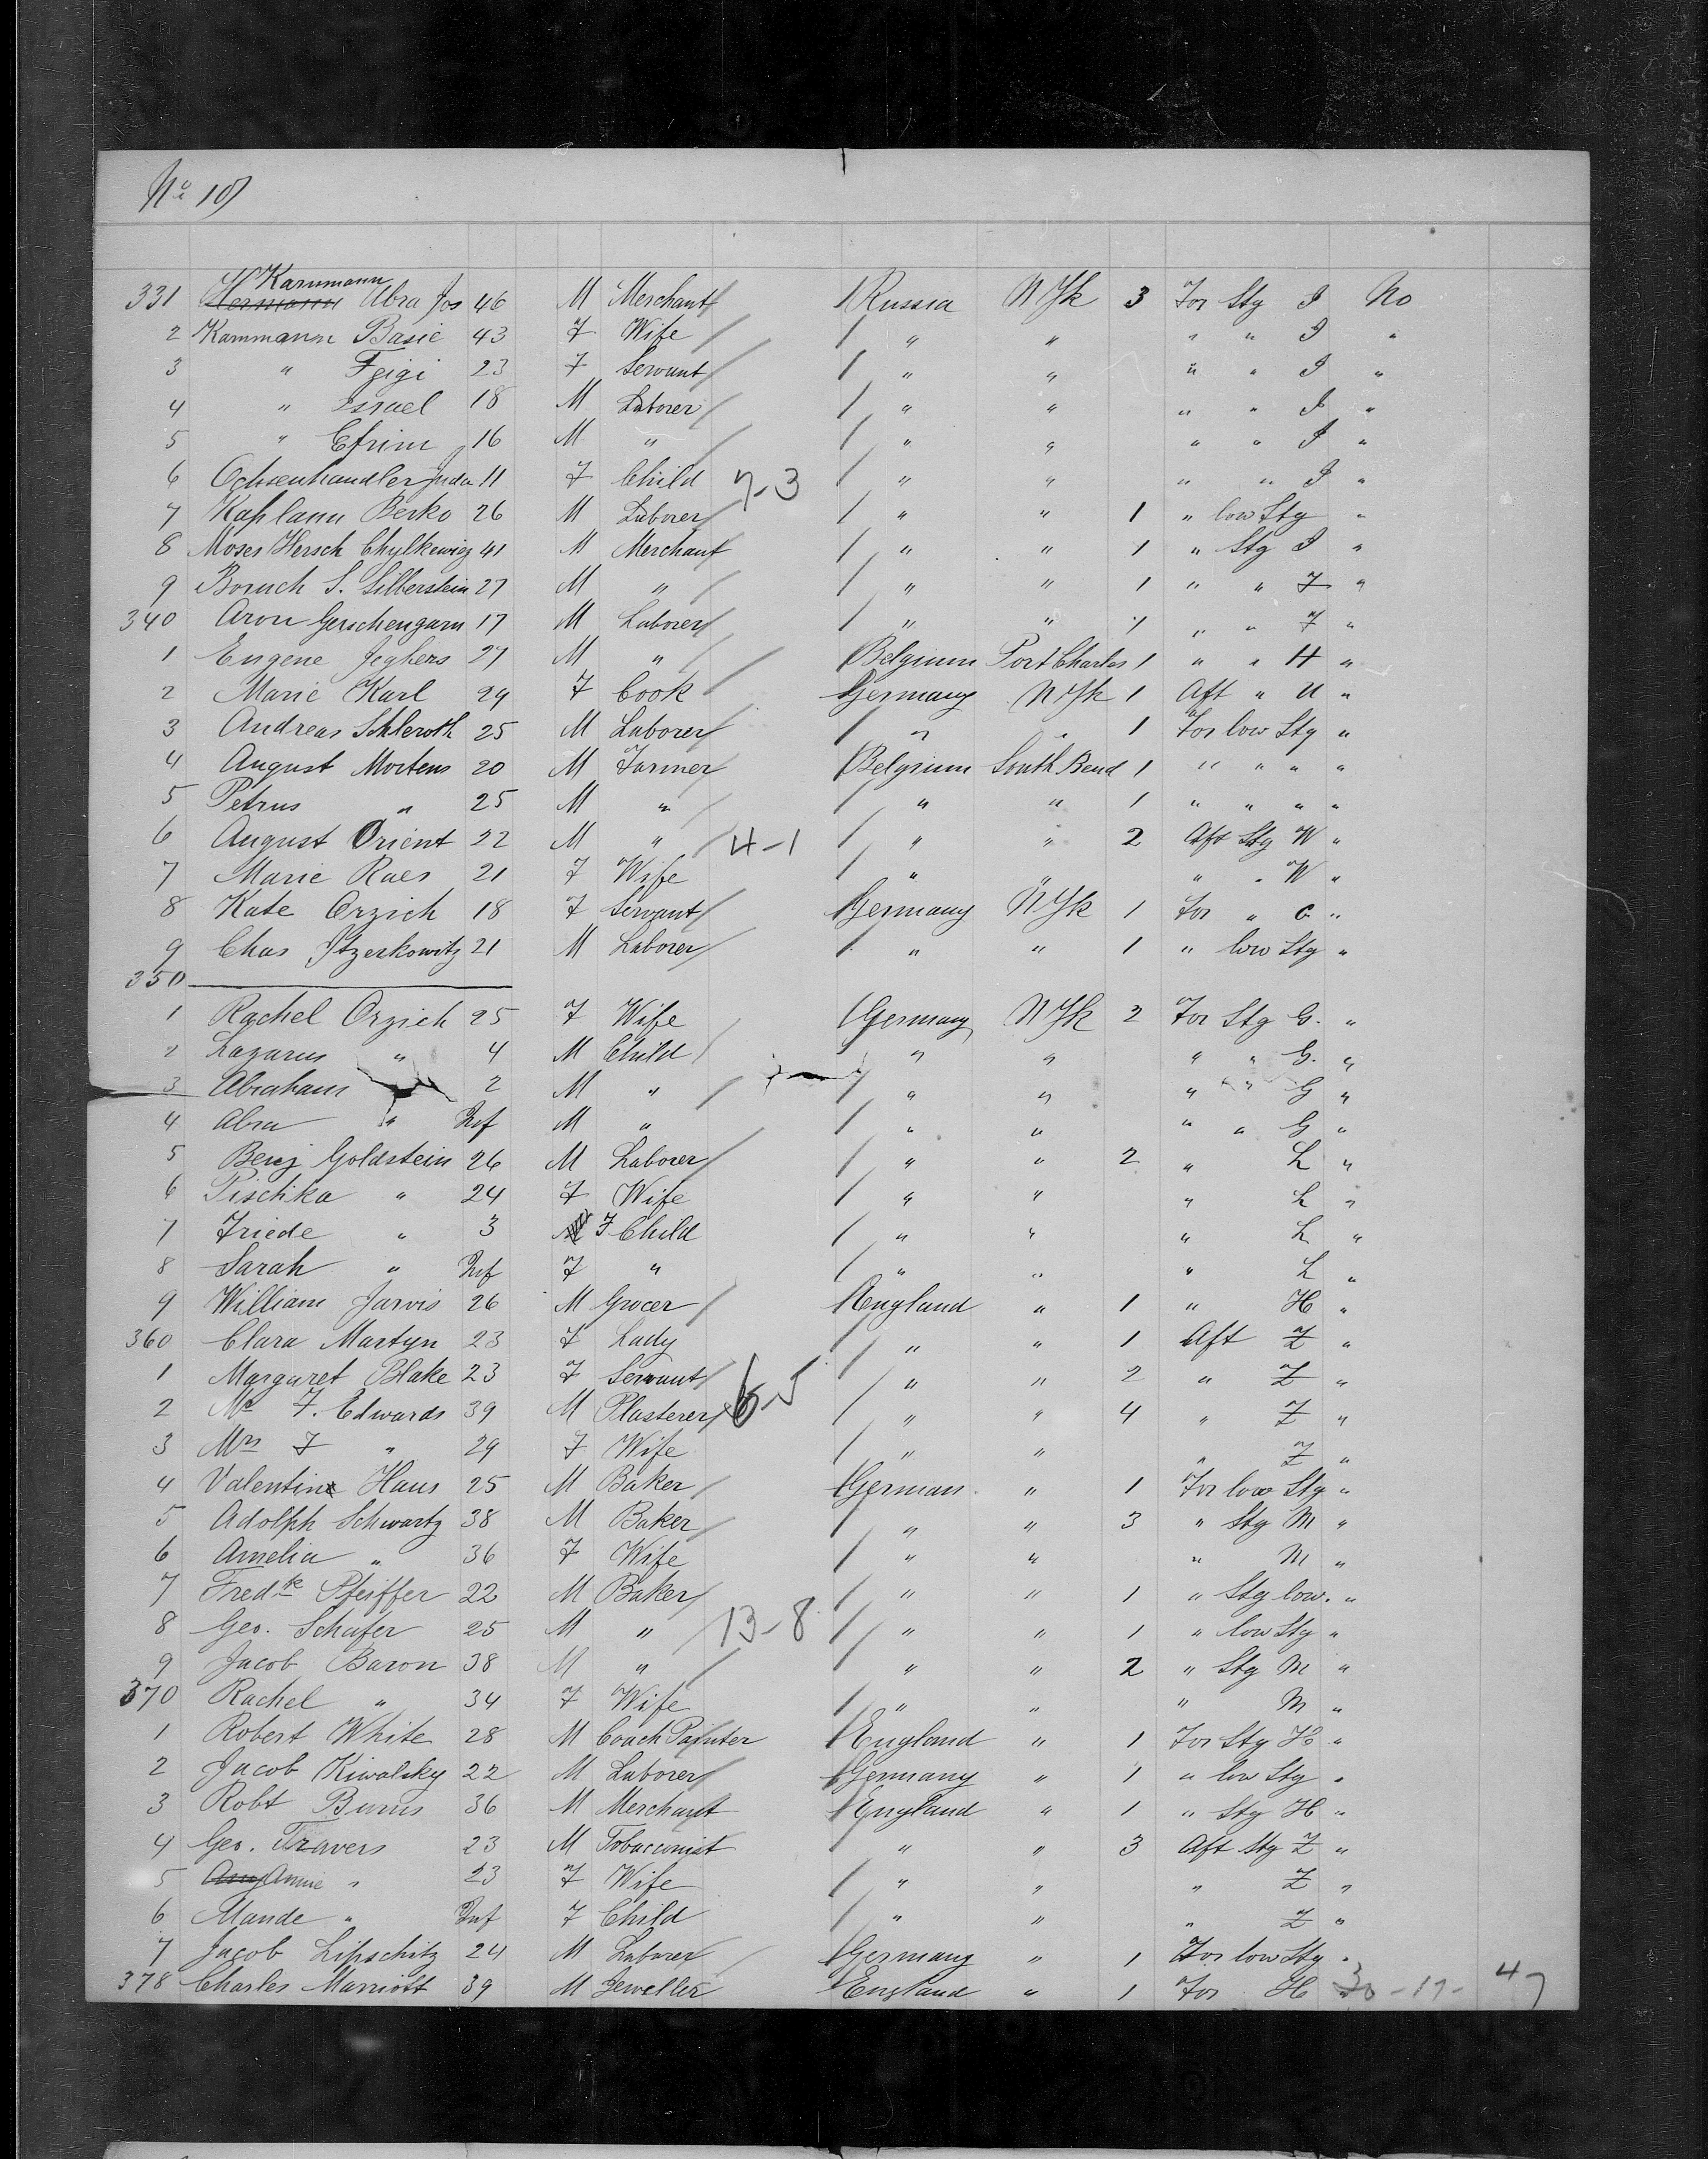 No 10
331 Karnmann Abra Jos 46 M Merchant Russia N Yk 3 For Stg I No
2 Karnmann Basie 43 F Wife " " " " I "
3 " Feigi 23 F Servant " " " " I "
4 " Israel 18 M Laborer " " " " I "
5 " Efrim 16 M " " " " " I "
6 Ochsenhandler Juda 11 F Child 7-3 " " " " I "
7 Kaplann Berko 26 M Laborer " " 1 " low Stg "
8 Moses Hersch Chylkewicz 41 M Merchant " " 1 " Stg I "
9 Boruch S. Silberstein 27 M " " " 1 " " I "
340 Aron Gerschengarn 17 M Laborer " " 1 " " I "
1 Eugene Jeghers 27 M " Belgium Port Charles 1 " " H "
2 Marie Karl 29 F Cook Germany N Yk 1 Aft " U "
3 Andreas Schleroth 25 M Laborer " " 1 For low Stg "
4 August Mortens 20 M Farmer Belgium South Bend 1 " " " "
5 Petrus " 25 M " " " 1 " " " "
6 August Orient 22 M " 4-1 " " 2 Aft Stg W "
7 Marie Raes 21 F Wife " " " " W "
8 Kate Orzich 18 F Servant Germany N Yk 1 For " G "
9 Chas Itzerkowitz 21 M Laborer " " 1 " low Stg "
350
1 Rachel Orzich 25 F Wife Germany N Yk 2 For Stg G. "
2 Lazarus " 4 M Child " " " " G. "
3 Abraham 2 M " " " " " G "
4 Abra " Inf M " " " " " G "
5 Benj Goldstein 26 M Laborer " " 2 " L "
6 Pischka " 24 F Wife " " " L "
7 Friede " 3 F Child " " " L "
8 Sarah " Inf F " " " " L "
9 William Jarvis 26 M Grocer England " 1 " H "
360 Clara Martyn 23 F Lady " " 1 Aft Z "
1 Margaret Blake 23 F Servant 6-5 " " 2 " Z "
2 Mr F. Edwards 39 M Plasterer " " 4 " Z "
3 Mrs F " 29 F Wife " " " Z "
4 Valentin Haus 25 M Baker German " 1 For low Stg "
5 Adolph Schwartz 38 M Baker " " 3 " Stg M "
6 Amelia " 36 F Wife " " " M "
7 Fredk Pfeiffer 22 M Baker " " 1 " Stg low. "
8 Geo. Schafer 25 M " 13-8 " " 1 " low Stg "
9 Jacob Baron 38 M " " " 2 " Stg M "
370 Rachel " 34 F Wife " " " M "
1 Robert White 28 M Coach Painter England " 1 For Stg H "
2 Jacob Kiwalsky 22 M Laborer Germany " 1 " low Stg "
3 Robt Burns 36 M Merchant England " 1 " Stg H "
4 Geo. Travers 23 M Tobacconist " " 3 Aft Stg Z "
5 Annie " 23 F Wife " " " Z "
6 Maude " Inf F Child " " " Z "
7 Jacob Lipschitz 24 M Laborer Germany " 1 For low Stg "
378 Charles Marriott 39 M Jeweller England " 1 For H 30-17- 47